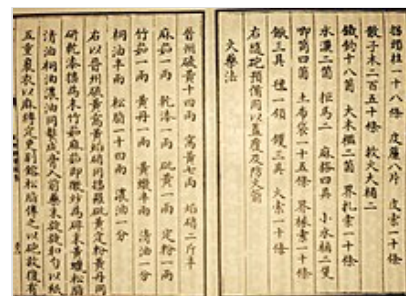 搭頭柱一十八條 皮簾八片 皮索一十條
散子木二百五十條 救火大桶二
鐵鈎十八箇 大木檻二箇 界扎索一十條
水濃二箇 拒馬二 麻搭四具 小水桶二隻
唧筒四箇 土布袋一十五條 界椽索一十條
鍬三具 氊一領 钁三具 火索一十條
右隨砲預備用以蓋覆及防火箭
火藥法
晉州硫黃十四兩 窩黃七兩 焰硝二斤半
麻茹一兩 乾漆一兩 砒黃一兩 定粉一兩
竹茹一兩 黃丹一兩 黃蠟半兩 清油一分
桐油半兩 松脂一十四兩 濃油一分
右以晉州硫黃窩黃焰硝同擣羅砒黃定粉黃丹同
研乾漆擣為末竹茹麻茹即微炒為碎末黃蠟松脂
清油桐油濃油同熬成膏入前藥末旋旋和勻以紙
五重裹衣以麻縛定更別鎔松脂傅之以砲放復有